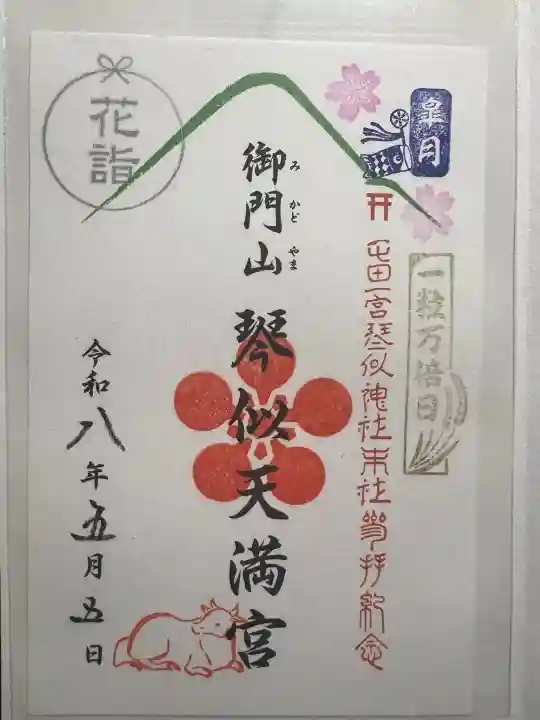 皐月
一粒万倍日
屯田一宮琴似神社末社参拝紀念
御門山 琴似天満宮
みかどやま
花詣
令和八年五月五日